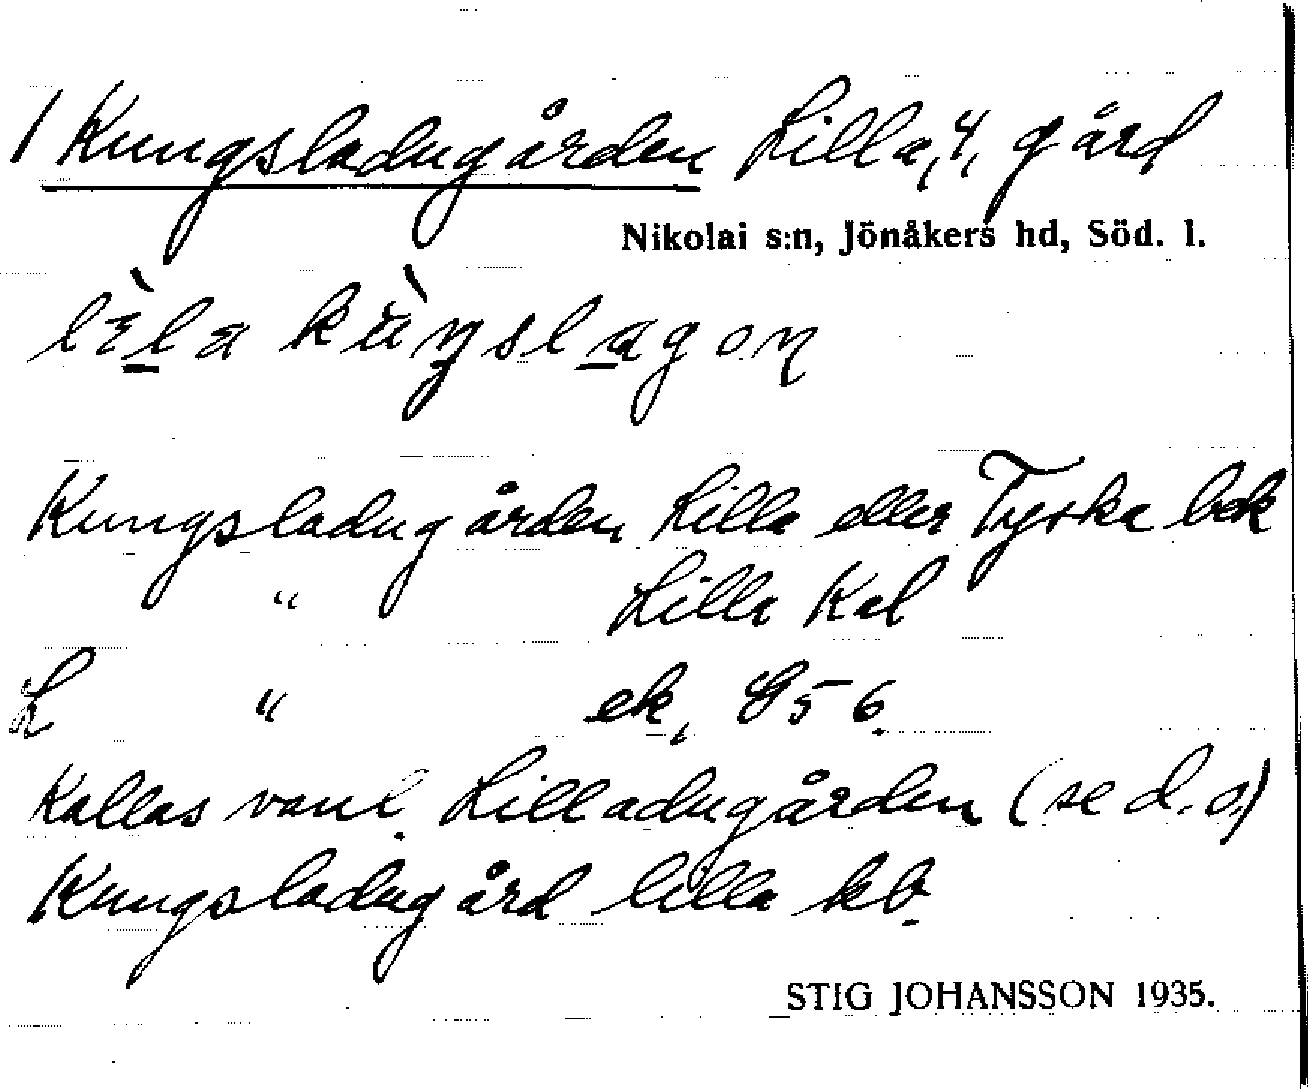 1 Kungsladugården Lilla, 4, gård
Nikolai s:n, Jönåkers hd, Söd. l.
lìla kùŋslagoɳ
Kungsladugården Lilla eller Tyska bek
" Lilla Kal
L " ek, G56.
Kallas vanl. Lilladugården (se d. o)
Kungsladugård lilla kb.
STIG JOHANSSON 1935.